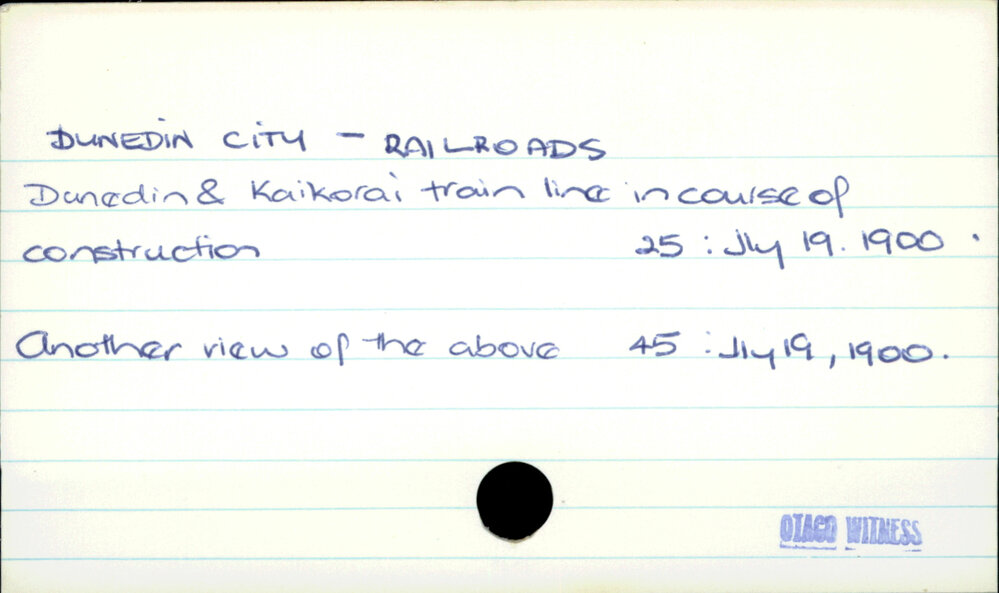 DUNEDIN CITY - RAILROADS
Dunedin & Kaikorai train line in course of
construction 25 : Jly 19. 1900 .
Another view of the above 45 : Jly 19, 1900.
OTAGO WITNESS